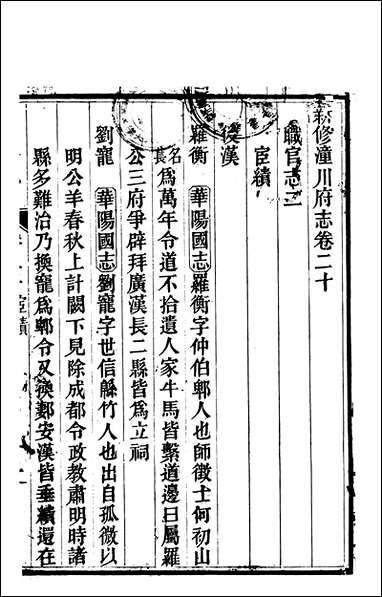 新修潼川府志卷二十
職官志二
宦績
後漢
羅衡 華陽國志羅衡字仲伯郪人也師徵士何初山
名
真為萬年令道不拾遺人家牛馬皆繫道邊曰屬羅
公三府爭辟拜廣漢長二縣皆為立祠
劉寵 華陽國志劉寵字世信緜竹人也出自孤微以
明公羊春秋上計闕下見除成都令政教肅明時諸
縣多難治乃換寵為郫令又換郪安漢皆垂績還在
宦績